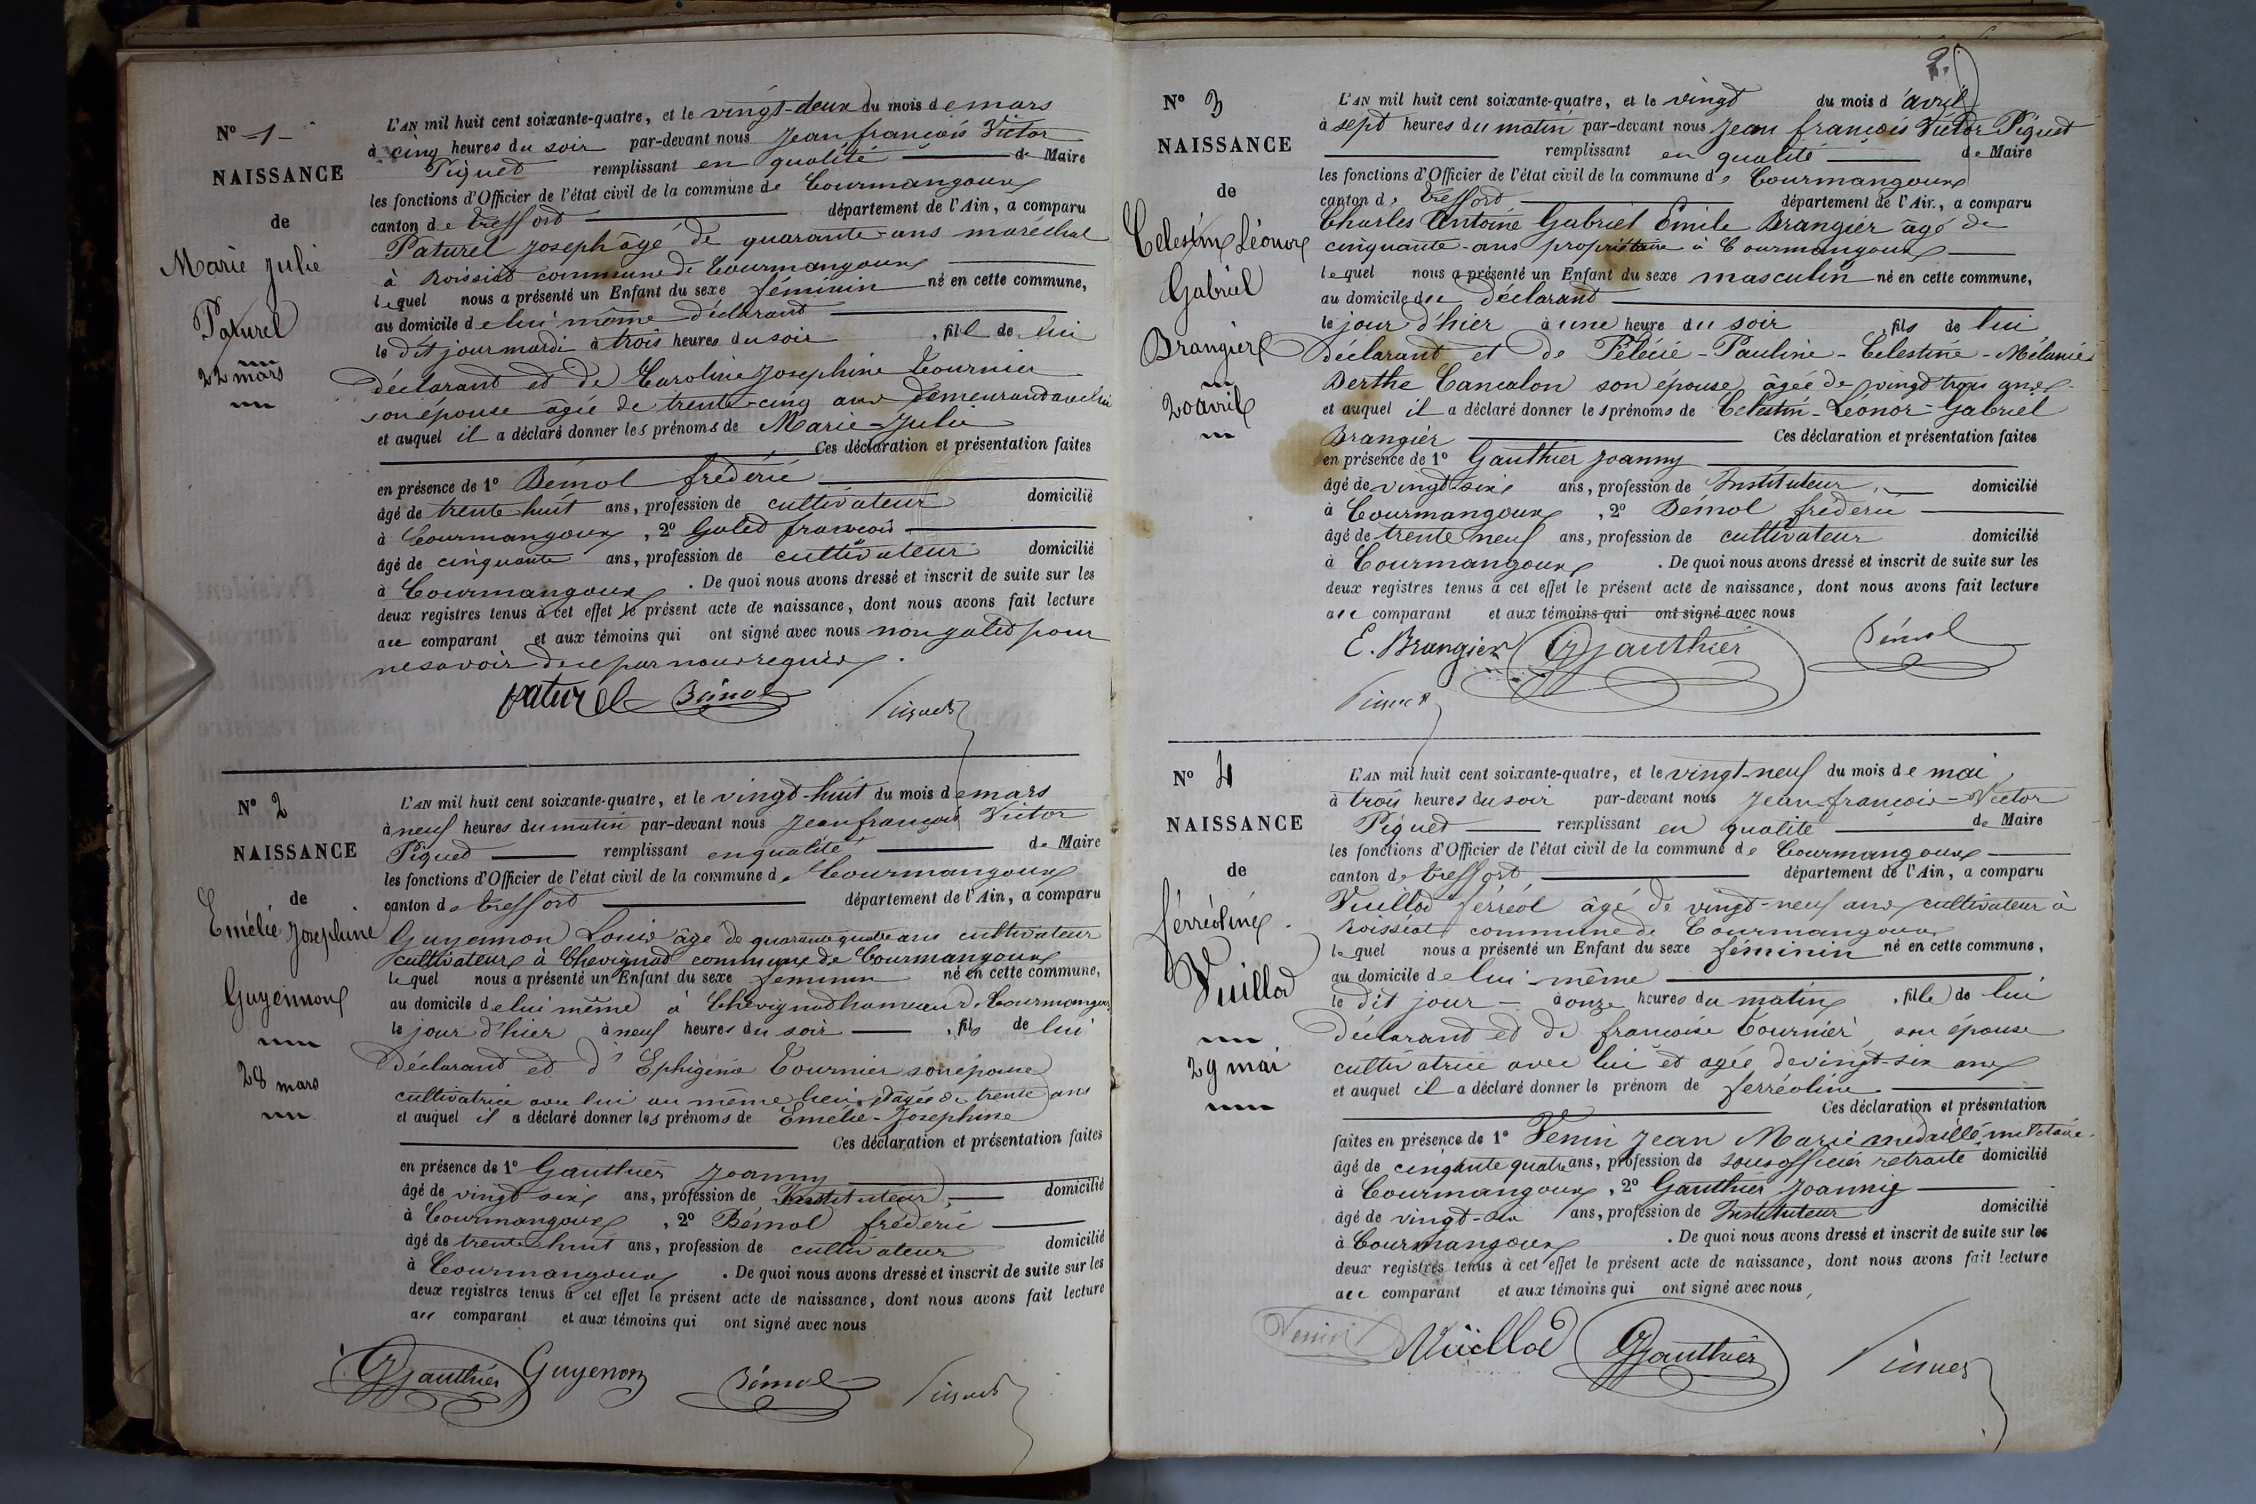 N° 1
NAISSANCE
de
Marie Julie
Paturel
22 mars
L'AN mil huit cent soixante-quatre, et le vingt-deux du mois de mars
à cinq heures du soir par-devant nous Jean françois Victor
Piquet remplissant en qualité de Maire
les fonctions d'Officier de l'état civil de la commune de Courmangoux
canton de treffort département de l'Ain, a comparu
Paturel Joseph âgé de quarante-ans maréchal
à Roissiat commune de Courmangoux
lequel nous a présenté un Enfant du sexe féminin né en cette commune,
au domicile de lui même déclarant
le dit jour mardi à trois heures du soir, fille de lui
déclarant et de Caroline Josephine Tournier
son épouse âgée de trente-cinq ans demeurant avec lui
et auquel il a déclaré donner les prénoms de Marie-Julie
Ces déclaration et présentation faites
en présence de 1° Bémol fréderic
âgé de trente huit ans, profession de cultivateur domicilié
à Courmangoux, 2° Galed françois
âgé de cinquante ans, profession de cultivateur domicilié
à Courmangoux. De quoi nous avons dressé et inscrit de suite sur les
deux registres tenus à cet effet le présent acte de naissance, dont nous avons fait lecture
au comparant et aux témoins qui ont signé avec nous non galed pour
ne savoir de ce par nous requis.
paturel Bémol Piquet
N° 2
NAISSANCE
de
Emélie Josephine
Guyennon
28 mars
L'AN mil huit cent soixante-quatre, et le vingt-huit du mois de mars
à neuf heures du matin par-devant nous Jean françois Victor
Piquet remplissant en qualité de Maire
les fonctions d'Officier de l'état civil de la commune de Courmangoux
canton de treffort département de l'Ain, a comparu
Guyennon Louis âgé de quarante quatre ans cultivateur
cultivateur à Chevignat commune de Courmangoux
lequel nous a présenté un Enfant du sexe feminin né en cette commune,
au domicile de lui même à Chevignat hameau de Courmangoux
le jour d'hier à neuf heures du soir, fils de lui
déclarant et d'Ephigénie Tournier son épouse
cultivatrice avec lui au même lieu et âgée de trente ans
et auquel il a déclaré donner les prénoms de Emelie-Josephine
Ces déclaration et présentation faites
en présence de 1° Gauthier Joanny
âgé de vingt six ans, profession de Instituteur domicilié
à Courmangoux, 2° Bémol fréderic
âgé de trente huit ans, profession de cultivateur domicilié
à Courmangoux. De quoi nous avons dressé et inscrit de suite sur les
deux registres tenus à cet effet le présent acte de naissance, dont nous avons fait lecture
au comparant et aux témoins qui ont signé avec nous
Gauthier Guyenon Bémol Piquet
2.
N° 3
NAISSANCE
de
Celestin Léonor
Gabriel
Brangier
20 avril
L'AN mil huit cent soixante-quatre, et le vingt du mois d'avril
à sept heures du matin par-devant nous Jean françois Victor Piquet
remplissant en qualité de Maire
les fonctions d'Officier de l'état civil de la commune de Courmangoux
canton de treffort département de l'Ain, a comparu
Charles Antoine Gabriel Emile Brangier âgé de
cinquante-ans propriétaire à Courmangoux
lequel nous a présenté un Enfant du sexe masculin né en cette commune,
au domicile du déclarant
le jour d'hier à une heure du soir, fils de lui
déclarant et de Félécie-Pauline-Celestine-Mélanie
Berthe Cancalon son épouse âgée de vingt trois ans
et auquel il a déclaré donner les prénoms de Celestin-Léonor-Gabriel
Brangier Ces déclaration et présentation faites
en présence de 1° Gauthier Joanny
âgé de vingt six ans, profession de Instituteur domicilié
à Courmangoux, 2° Bémol fréderic
âgé de trente neuf ans, profession de cultivateur domicilié
à Courmangoux. De quoi nous avons dressé et inscrit de suite sur les
deux registres tenus à cet effet le présent acte de naissance, dont nous avons fait lecture
au comparant et aux témoins qui ont signé avec nous
E. Brangier Gauthier Bémol
Piquet
N° 4
NAISSANCE
de
férréoline
Vuillod
29 mai
L'AN mil huit cent soixante-quatre, et le vingt-neuf du mois de mai
à trois heures du soir par-devant nous Jean françois-Victor
Piquet remplissant en qualité de Maire
les fonctions d'Officier de l'état civil de la commune de Courmangoux
canton de treffort département de l'Ain, a comparu
Vuillod férréol âgé de vingt-neuf ans cultivateur à
Roissiat commune de Courmangoux
lequel nous a présenté un Enfant du sexe féminin né en cette commune,
au domicile de lui-même
le dit jour à onze heures du matin, fille de lui
déclarant et de francoise Tournier son épouse
cultivatrice avec lui et agée de vingt-six ans
et auquel il a déclaré donner le prénom de ferréoline
Ces déclaration et présentation
faites en présence de 1° Venin Jean Marie médaillé militaire
âgé de cinqante quatre ans, profession de sous officier retraité domicilié
à Courmangoux, 2° Gauthier Joanny
âgé de vingt-six ans, profession de Instituteur domicilié
à Courmangoux. De quoi nous avons dressé et inscrit de suite sur les
deux registres tenus à cet effet le présent acte de naissance, dont nous avons fait lecture
au comparant et aux témoins qui ont signé avec nous,
Venin Vuillod Gauthier Piquet